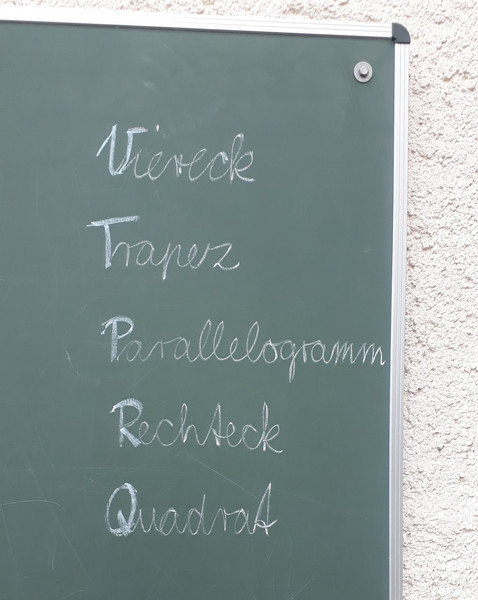 Viereck
Trapez
Parallelogramm
Rechteck
Quadrat